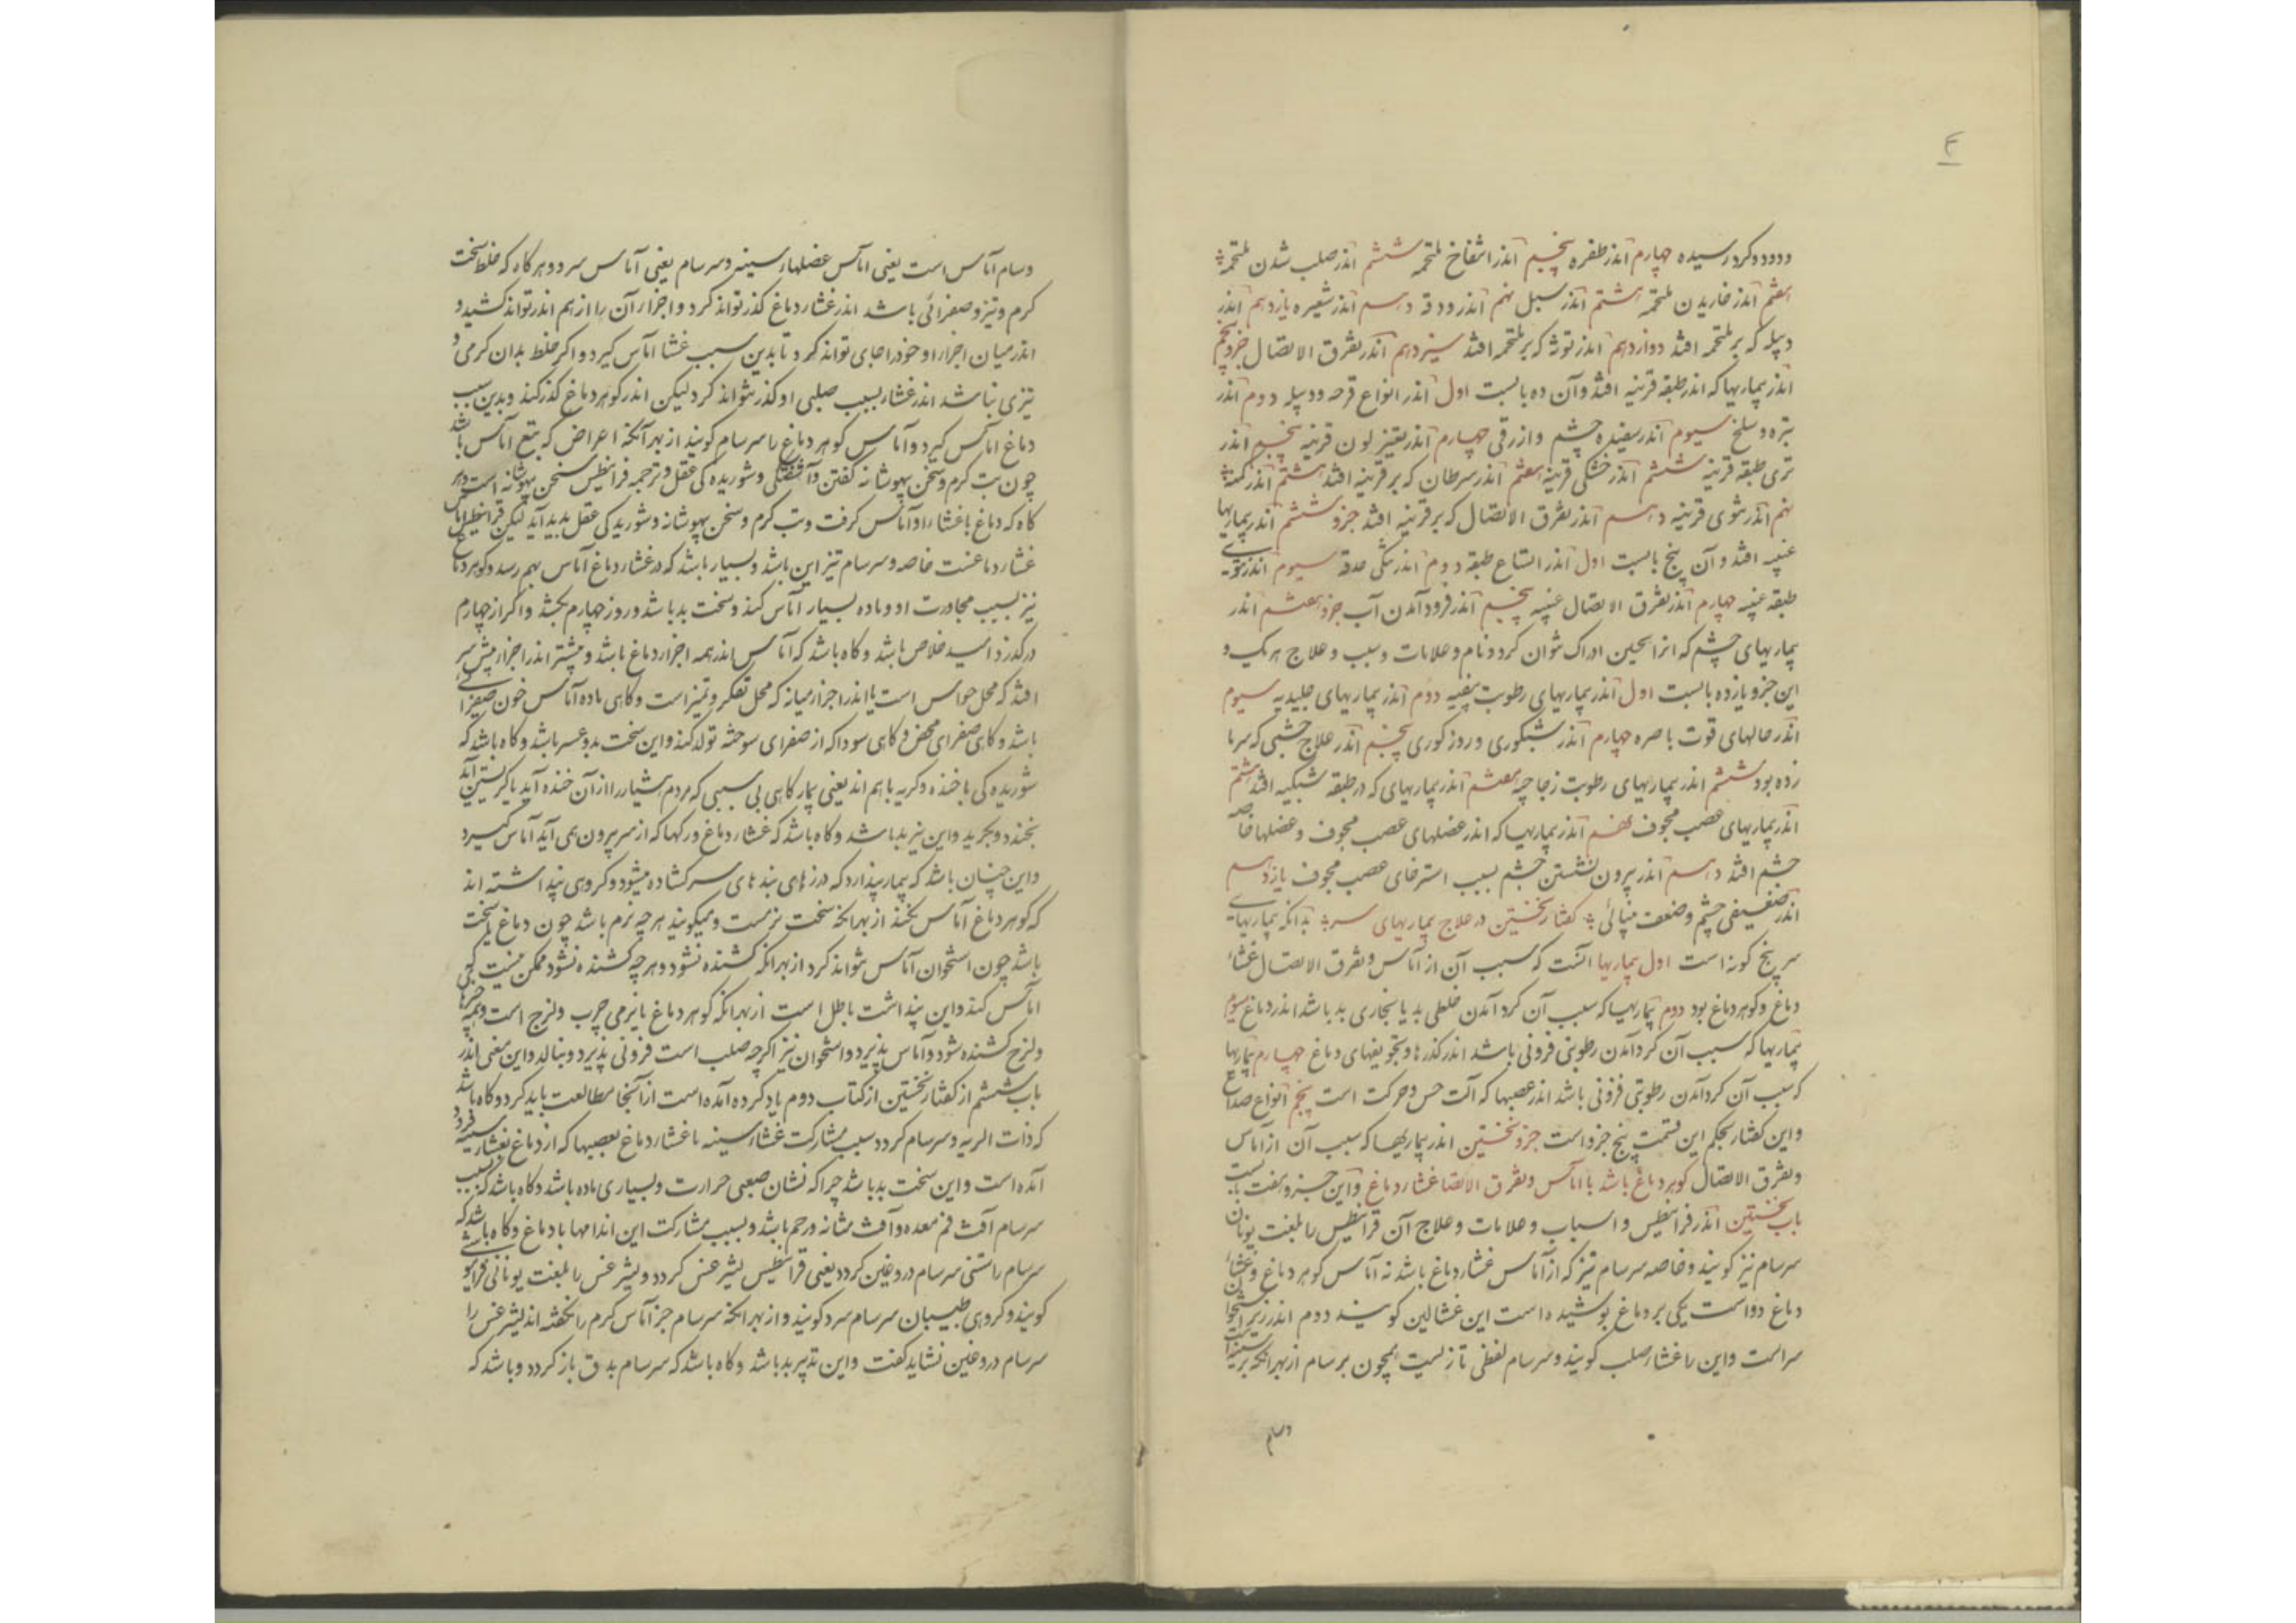 ۴
ودود و کرد رسیده چهارم اندر ظفره پنجم اندر انتفاخ ملتحمه ششم اندر صلب شدن ملتحمه
هفتم اندر خاریدن ملتحمه هشتم اندر سبل نهم اندر ودقه دهم اندر شعیره یازدهم اندر
دبیله که بر ملتحمه افتد دوازدهم اندر توثه که بر ملتحمه افتد سیزدهم اندر تفرق الاتصال جزو پنجم
اندر بیماریها که اندر طبقه قرنیه افتد و آن ده بابست اول اندر انواع قرحه و دبیله دوم اندر
بثره و سلخ سیوم اندر سفیده چشم و ازرقی چهارم اندر تغیر لون قرنیه پنجم اندر
تری طبقه قرنیه ششم اندر خشکی قرنیه هفتم اندر سرطان که بر قرنیه افتد هشتم اندر کمنه
نهم اندر نتوی قرنیه دهم اندر تفرق الاتصال که بر قرنیه افتد جزو ششم اندر بیماریها
عنبیه افتد و آن پنج بابست اول اندر اتساع طبقه دوم اندر تنگی حدقه سیوم اندر نتوی
طبقه عنبیه چهارم اندر تفرق الاتصال عنبیه پنجم اندر فرود آمدن آب جزو هفتم اندر
بیماریهای چشم که انرا بحین ادراک نتوان کرد و نام و علامات و سبب و علاج هر یک و
این جزو یازده بابست اول اندر بیماریهای رطوبت بیضیه دوم اندر بیماریهای جلیدیه سیوم
اندر حالهای قوت باصره چهارم اندر شبکوری و روز کوری پنجم اندر علاج چشمی که سرما
زده بود ششم اندر بیماریهای رطوبت زجاجیه هفتم اندر بیماریهای که در طبقه شبکیه افتد هشتم
اندر بیماریهای عصب مجوف نهم اندر بیماریها که اندر عضلهای عصب مجوف و عضلها خاصه
چشم افتد دهم اندر بیرون نشستن چشم بسبب استرخای عصب مجوف یازدهم
اندر ضعیفی چشم و ضعف بینائی گفتار نخستین در علاج بیماریهای سر بدانکه بیماریهای
سر پنج کونه است اول بیماریها آنست که سبب آن از آماس و تفرق الاتصال غشاء
دماغ و کوهر دماغ بود دوم بیماریها که سبب آن کرد آمدن خلطی بد یا بخاری بد باشد اندر دماغ سیوم
بیماریها که سبب آن کرد آمدن رطوبتی فزونی باشد اندر کذرها و تجویفهای دماغ چهارم بیماریها
که سبب آن کرد آمدن رطوبتی فزونی باشد اندر عصبها که آلت حس و حرکت است پنجم انواع صداع
و این کفتار بحکم این قسمت پنج جزو است جزو نخستین اندر بیماریها که سبب آن از آماس
و تفرق الاتصال کوهر دماغ باشد یا آماس و تفرق الاتصا غشاء دماغ و این جزو هفت بابست
باب نخستین اندر قرانیطس و اسباب و علامات و علاج آن قرانیطس را بلغت یونان
سرسام نیز کویند و خاصه سرسام تیز که از آماس غشاء دماغ باشد نه آماس کوهر دماغ و غشاء
دماغ دو است یکی بر دماغ پوشیده است این غشا لین کویند دوم اندر زیر استخوان
سر است و این را غشاء صلب کویند و سرسام لفظی تازیست همچون برسام از بهر انکه بر سینه است
وسام
وسام آماس است یعنی اماس عضلهاء سینه و سرسام یعنی آماس سر و هر کاه که خلط سخت
کرم و تیز و صفرائی باشد اندر غشاء دماغ کذر تواند کرد و اجزاء آن را از هم اندر تواند کشید و
اندر میان اجزاء او خود را جای تواند کرد تا بدین سبب غشا اماس کیرد و اکر خلط بدان کرمی و
تیزی نباشد اندر غشاء بسبب صلبی او کذر نتواند کرد لیکن اندر کوهر دماغ کذر کند و بدین سبب
دماغ اماس کیرد و آماس کوهر دماغ را سرسام کویند از بهر آنکه اعراض که بتبع اماس باشد
چون تب کرم و سخن بیهوشانه کفتن و آشفتگی و شوریده کی عقل و ترجمه قرانیطس سخن بیهوشانه است و هر
کاه که دماغ یا غشاء او آماس کرفت و تب کرم و سخن بیهوشانه و شوریدکی عقل پدید آید لیکن قرانیطس اماس
غشاء دماغست خاصه و سرسام تیز این باشد و بسیار باشد که در غشاء دماغ آماس بهم رسد و کوهر دماغ
نیز بسبب مجاورت او و ماده بسیار آماس کند و سخت بد باشد و روز چهارم بکشد و اکر از چهارم
درکذرد امید خلاص باشد و کاه باشد که آماس اندر همه اجزاء دماغ باشد و بیشتر اندر اجزاء پیش سر
افتد که محل حواس است یا اندر اجزاء میانه که محل تفکر و تمیز است و کاهی ماده آماس خون صفرائی
باشد و کاهی صفرای محض و کاهی سودا که از صفرای سوخته تولد کند و این سخت بد و عسر باشد و کاه باشد که
شوریده کی با خنده و کریه با هم اند یعنی بیمار کاهی بی سببی که مردم هشیار را از آن خنده آید یا کریستن آید
بخندد و بکرید و این نیز بد باشد و کاه باشد که غشاء دماغ و رکها که از سر بیرون همی آید آماس کیرد
و این چنان باشد که بیمار پندارد که درزهای بندهای سر کشاده میشود و کروهی پنداشته اند
که کوهر دماغ آماس نکند از بهر انکه سخت نرمست و میکویند هر چه نرم باشد چون دماغ یا سخت
باشد چون استخوان آماس نتواند کرد از بهر انکه کشنده نشود و هر چه کشنده نشود ممکن نیست کی
آماس کند و این پنداشت باطل است از بهر انکه کوهر دماغ با نرمی چرب و لزج است و همه چیزها
ولزج کشنده شود و آماس پذیرد و استخوان نیز اکرچه صلب است فزونی پذیرد و ببالد و این معنی اندر
باب ششم از کفتار نخستین از کتاب دوم یاد کرده آمده است از آنجا مطالعت باید کرد و کاه باشد
که ذات الریه و سرسام کردد سبب مشارکت غشاء سینه با غشاء دماغ بعصبها که از دماغ بغشاء سینه فرود
آمده است و این سخت بد باشد چرا که نشان صعبی حرارت و بسیاری ماده باشد و کاه باشد که سبب
سرسام آفت فم معده و آفت مثانه و رحم باشد و بسبب مشارکت این اندامها با دماغ و کاه باشد که
سرسام راستی سرسام دروغین کردد یعنی قرانیطس لیثرغس کردد و لیثرغس را بلغت یونانی
کویند و کروهی طبیبان سرسام سرد کویند و از بهر انکه سرسام جز آماس کرم را نکفته اند لیثرغس را
سرسام دروغین نشاید کفت و این تدبیر بد باشد و کاه باشد که سرسام بدق باز کردد و باشد که